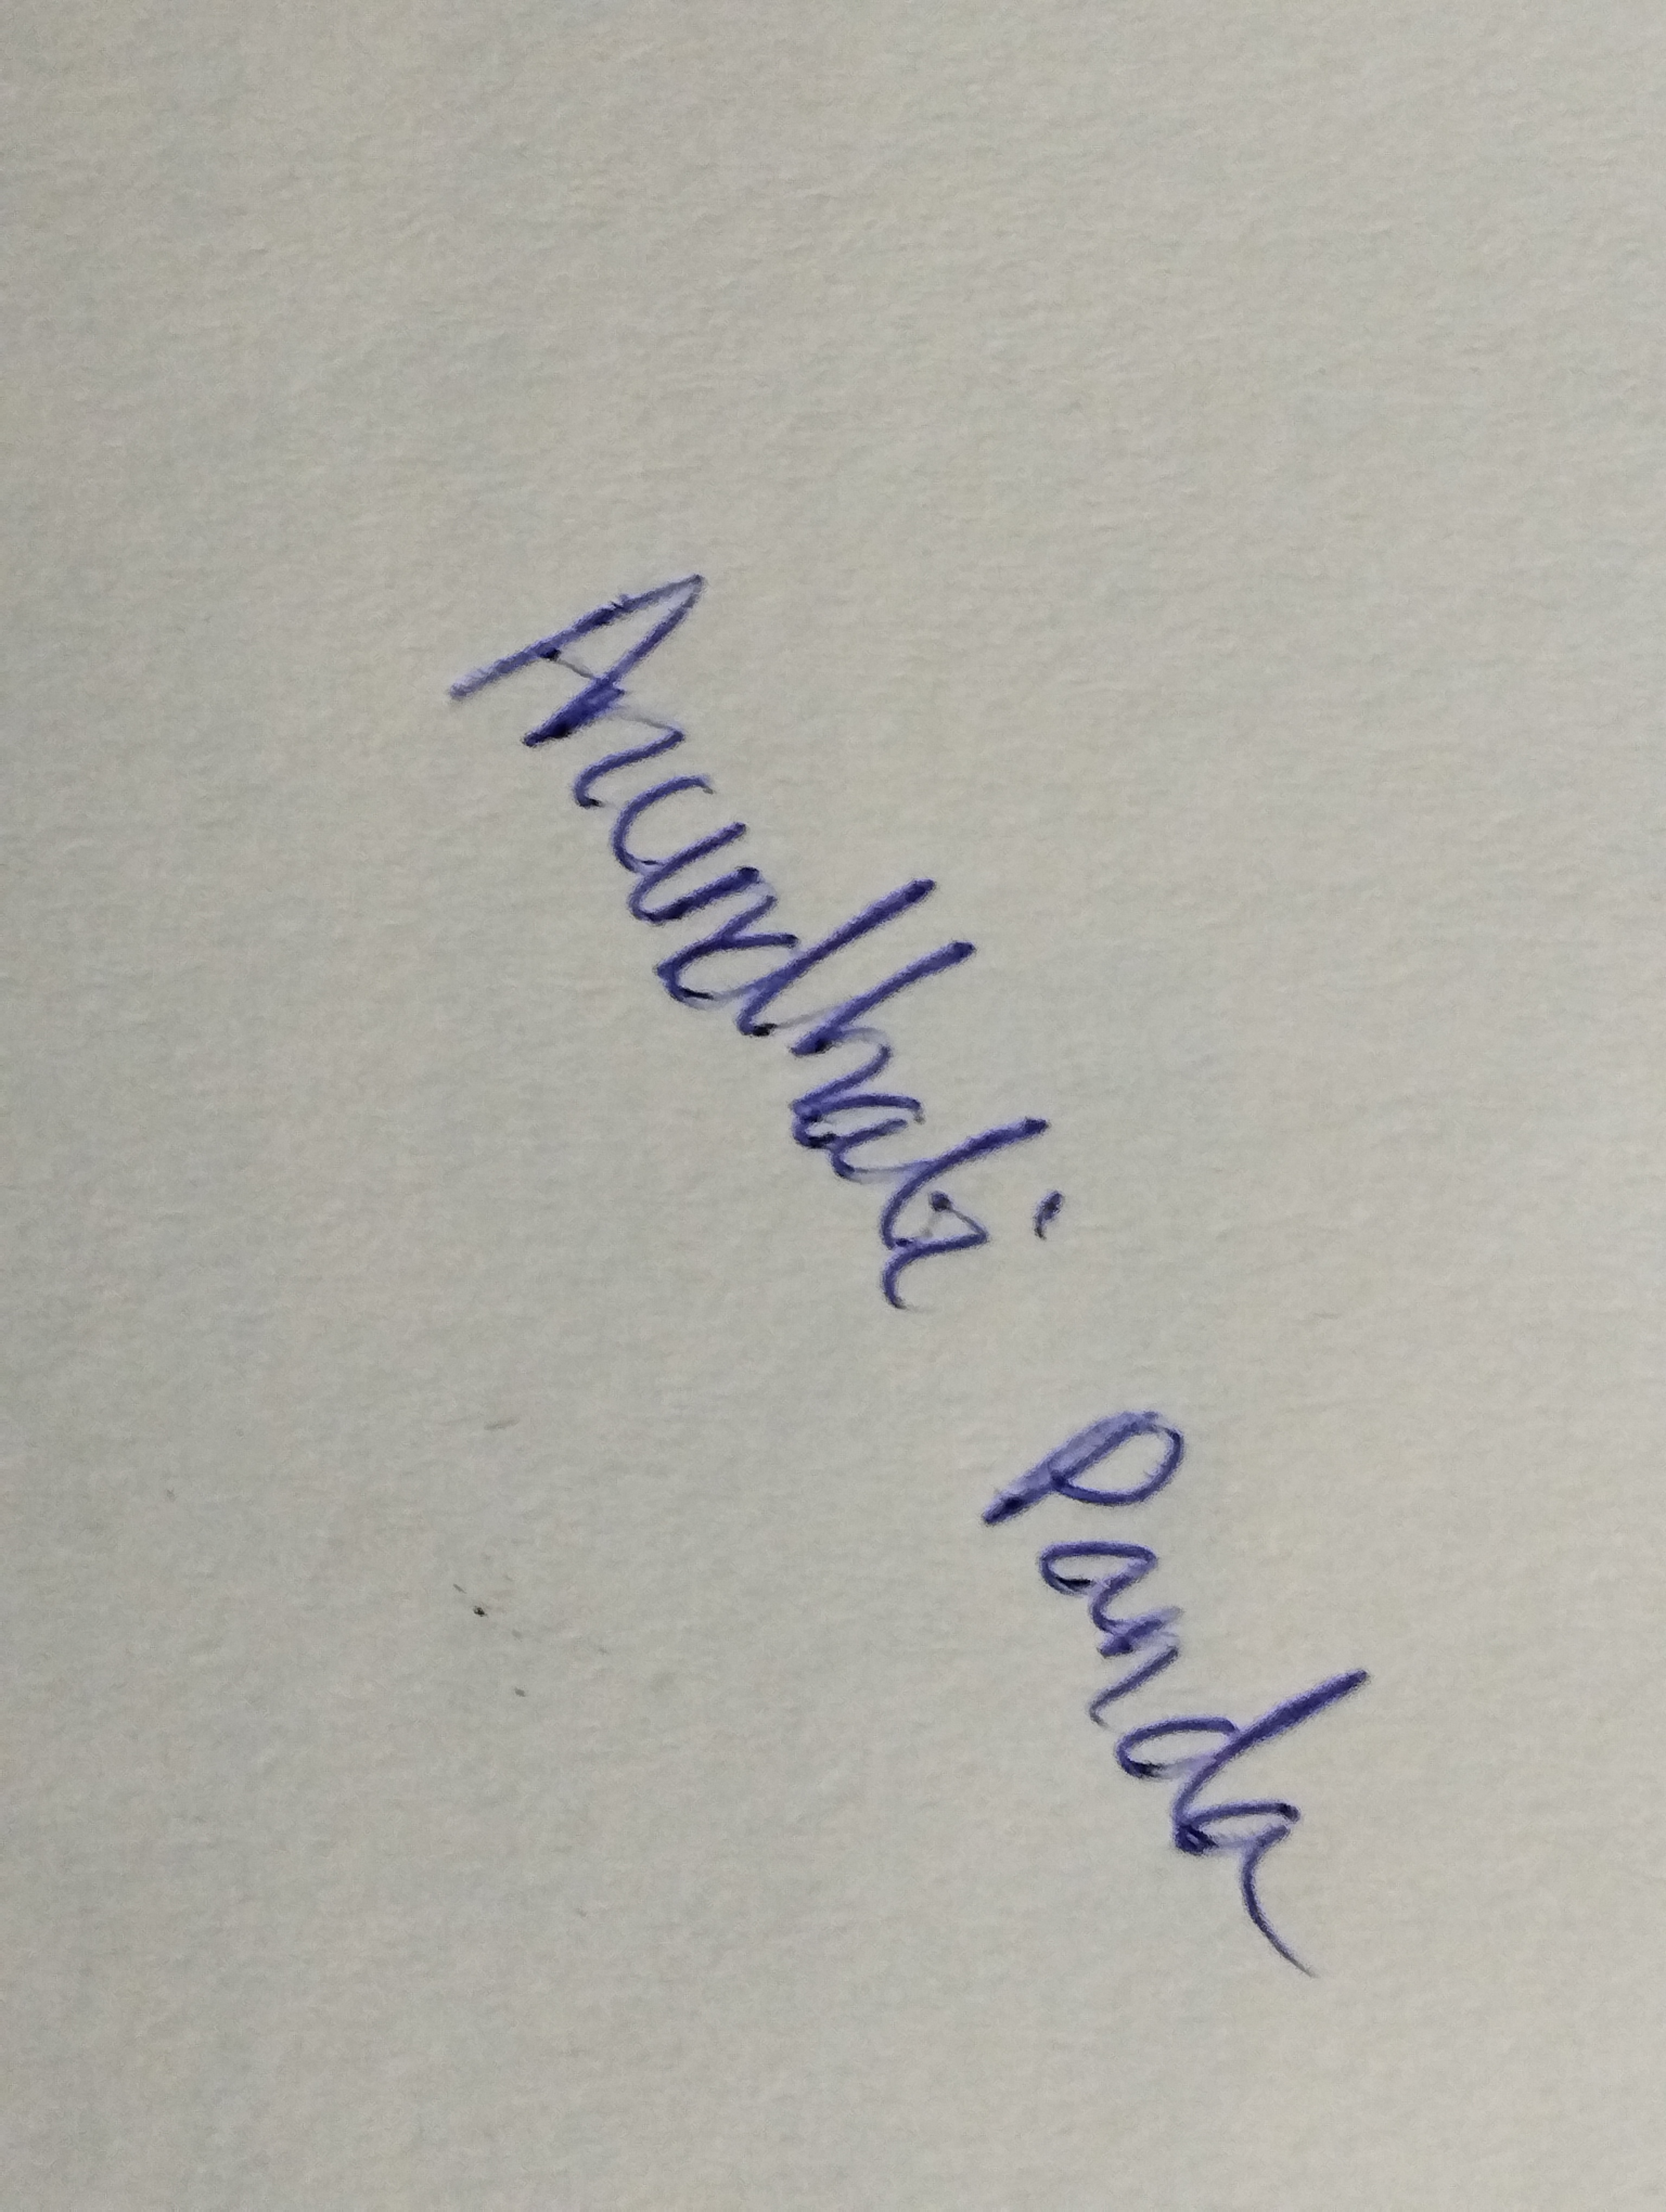 Arundhati Panda